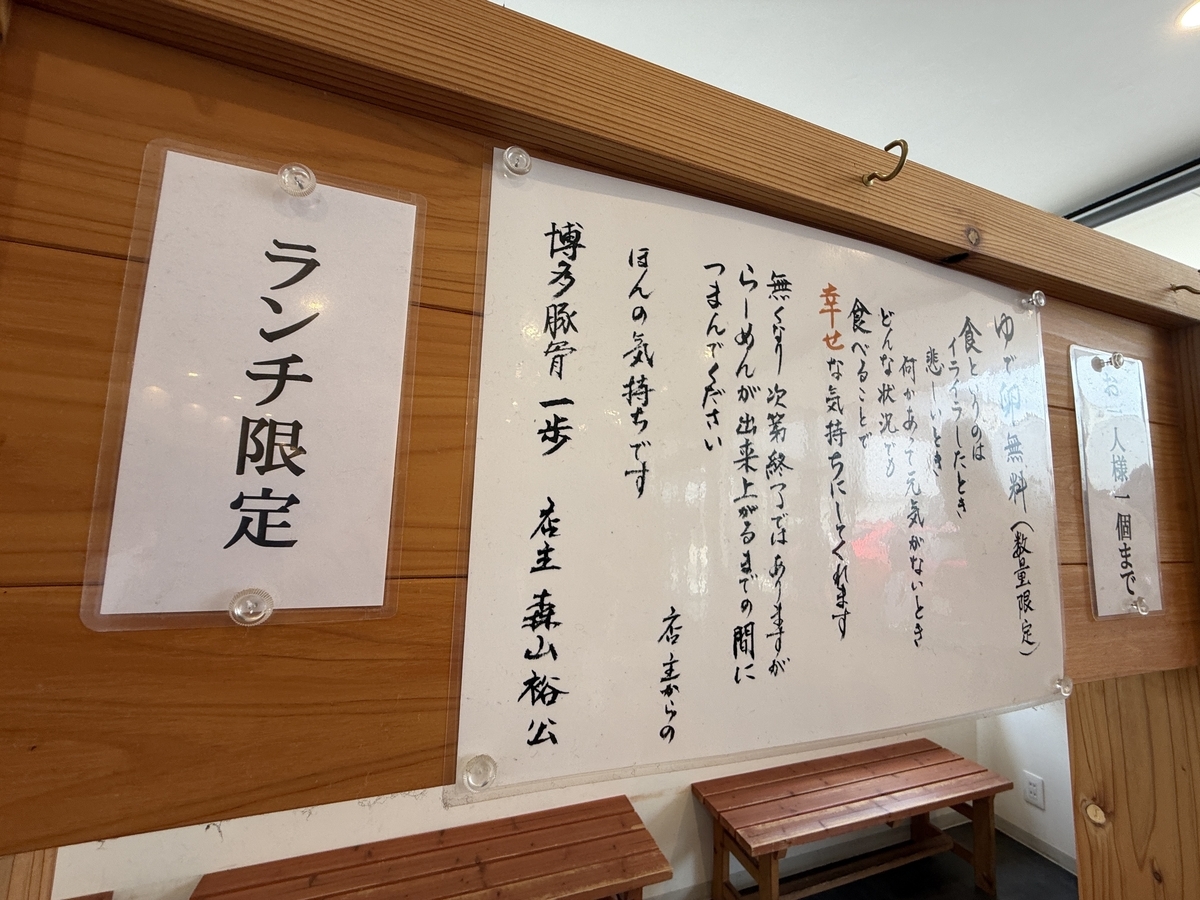 お一人様一個まで
ゆで卵無料（数量限定）
食というのは
イライラしたとき
悲しいとき
何かあって元気がないとき
どんな状況でも
食べることで
幸せな気持ちにしてくれます
無くなり次第終了ではありますが
らーめんが出来上がるまでの間に
つまんでください
店主からの
ほんの気持ちです
博多豚骨 一歩 店主 森山裕公
ランチ限定